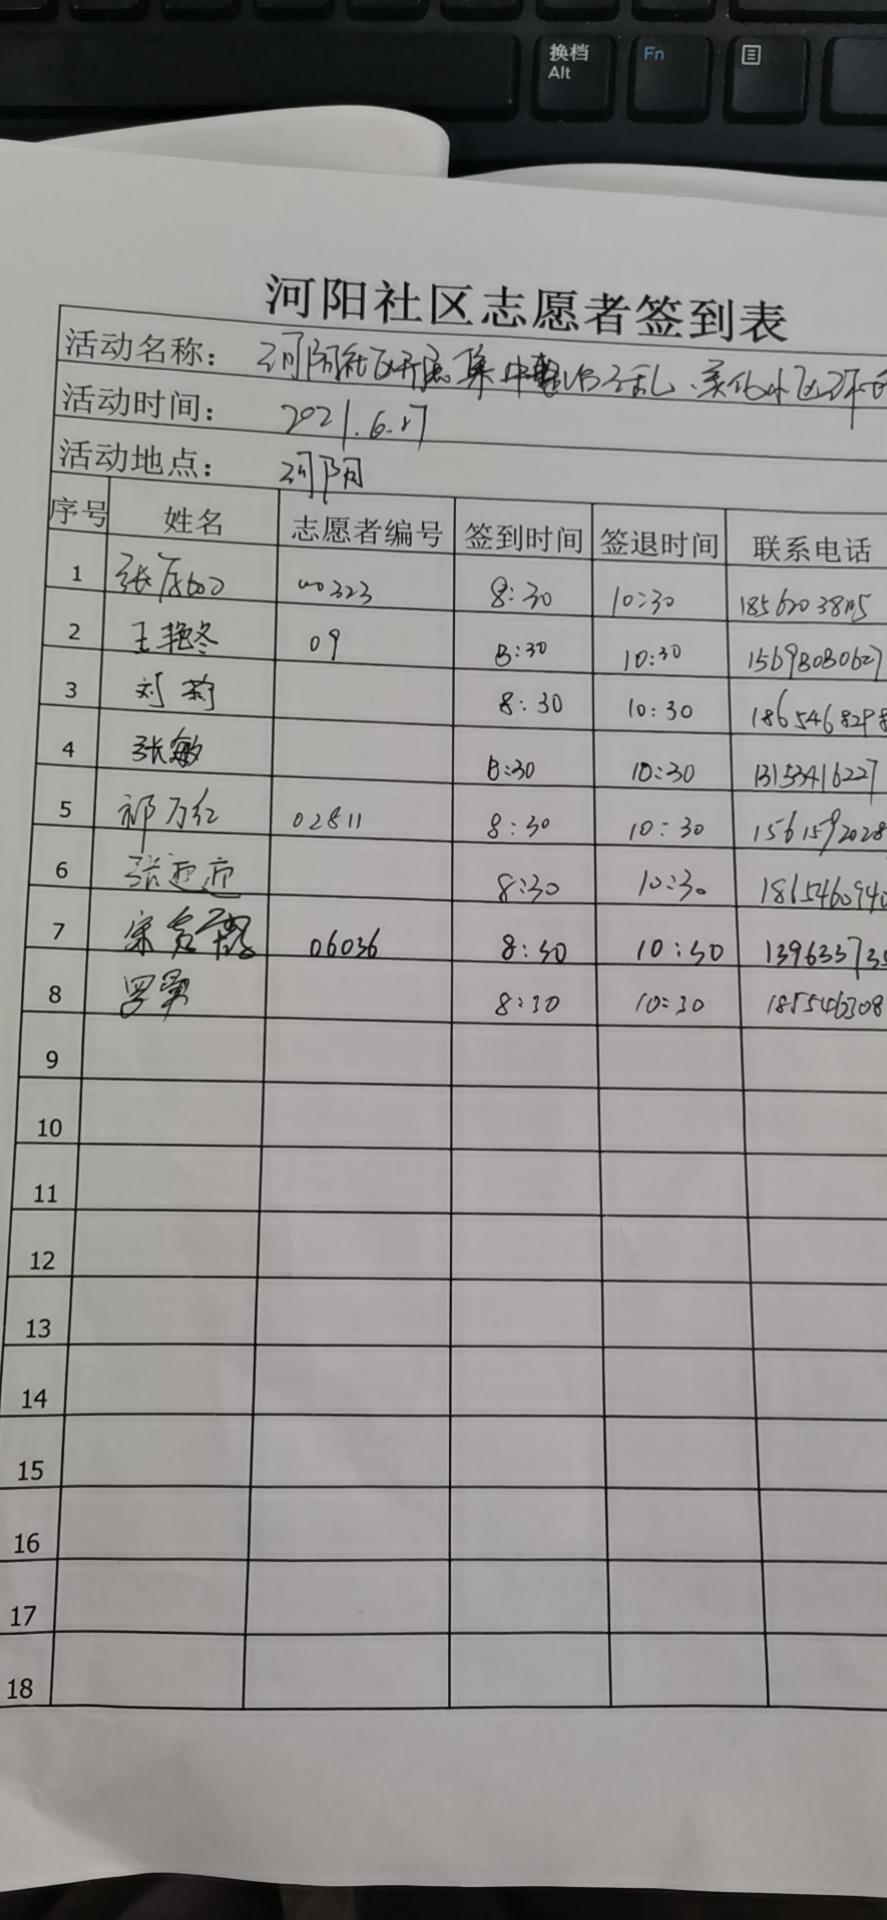 换档
Alt
Fn
河阳社区志愿者签到表
活动名称： 河阳社区开展集中整治 乱、美化小区环
活动时间： 2021.6.17
活动地点： 河阳
序号 姓名 志愿者编号 签到时间 签退时间 联系电话
1 张 00323 8:30 10:30
2 王艳冬 09 8:30 10:30 15698080627
3 刘莉 8:30 10:30 1865468298
4 张敏 8:30 10:30 13153416227
5 祁万红 02811 8:30 10:30 1561592028
6 张迎迎 8:30 10:30 1865460940
7 宋 06036 8:30 10:30 139633735
8 罗 8:30 10:30 185546308
9
10
11
12
13
14
15
16
17
18